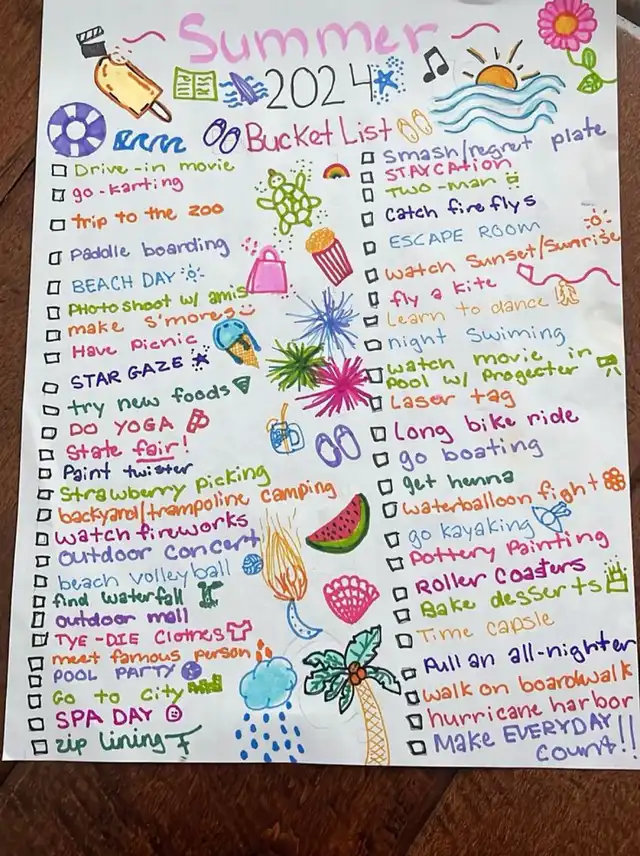 Summer
2024
Bucket List
Drive-in movie
go-karting
trip to the zoo
Paddle boarding
BEACH DAY
PHOTO SHOOT w/ amis
make s'mores
Have Picnic
STAR GAZE
try new foods
DO YOGA
State fair!
Paint twister
Strawberry picking
backyard/trampoline camping
watch fireworks
outdoor concert
beach volleyball
find waterfall
outdoor mall
TYE-DIE Clothes
meet famous person
POOL PARTY
Go to City
SPA DAY
zip lining
smash/regret plate
STAYCATION
TWO-man
Catch fireflys
ESCAPE ROOM
watch Sunset/Sunrise
fly a kite
Learn to dance
night Swiming
watch movie in
Pool w/ Progecter
Laser tag
Long bike ride
go boating
get henna
waterballoon fight
go kayaking
Pottery Painting
Roller Coasters
Bake desserts
Time capsle
Pull an all-nighter
walk on boardwalk
hurricane harbor
Make EVERYDAY
Count!!